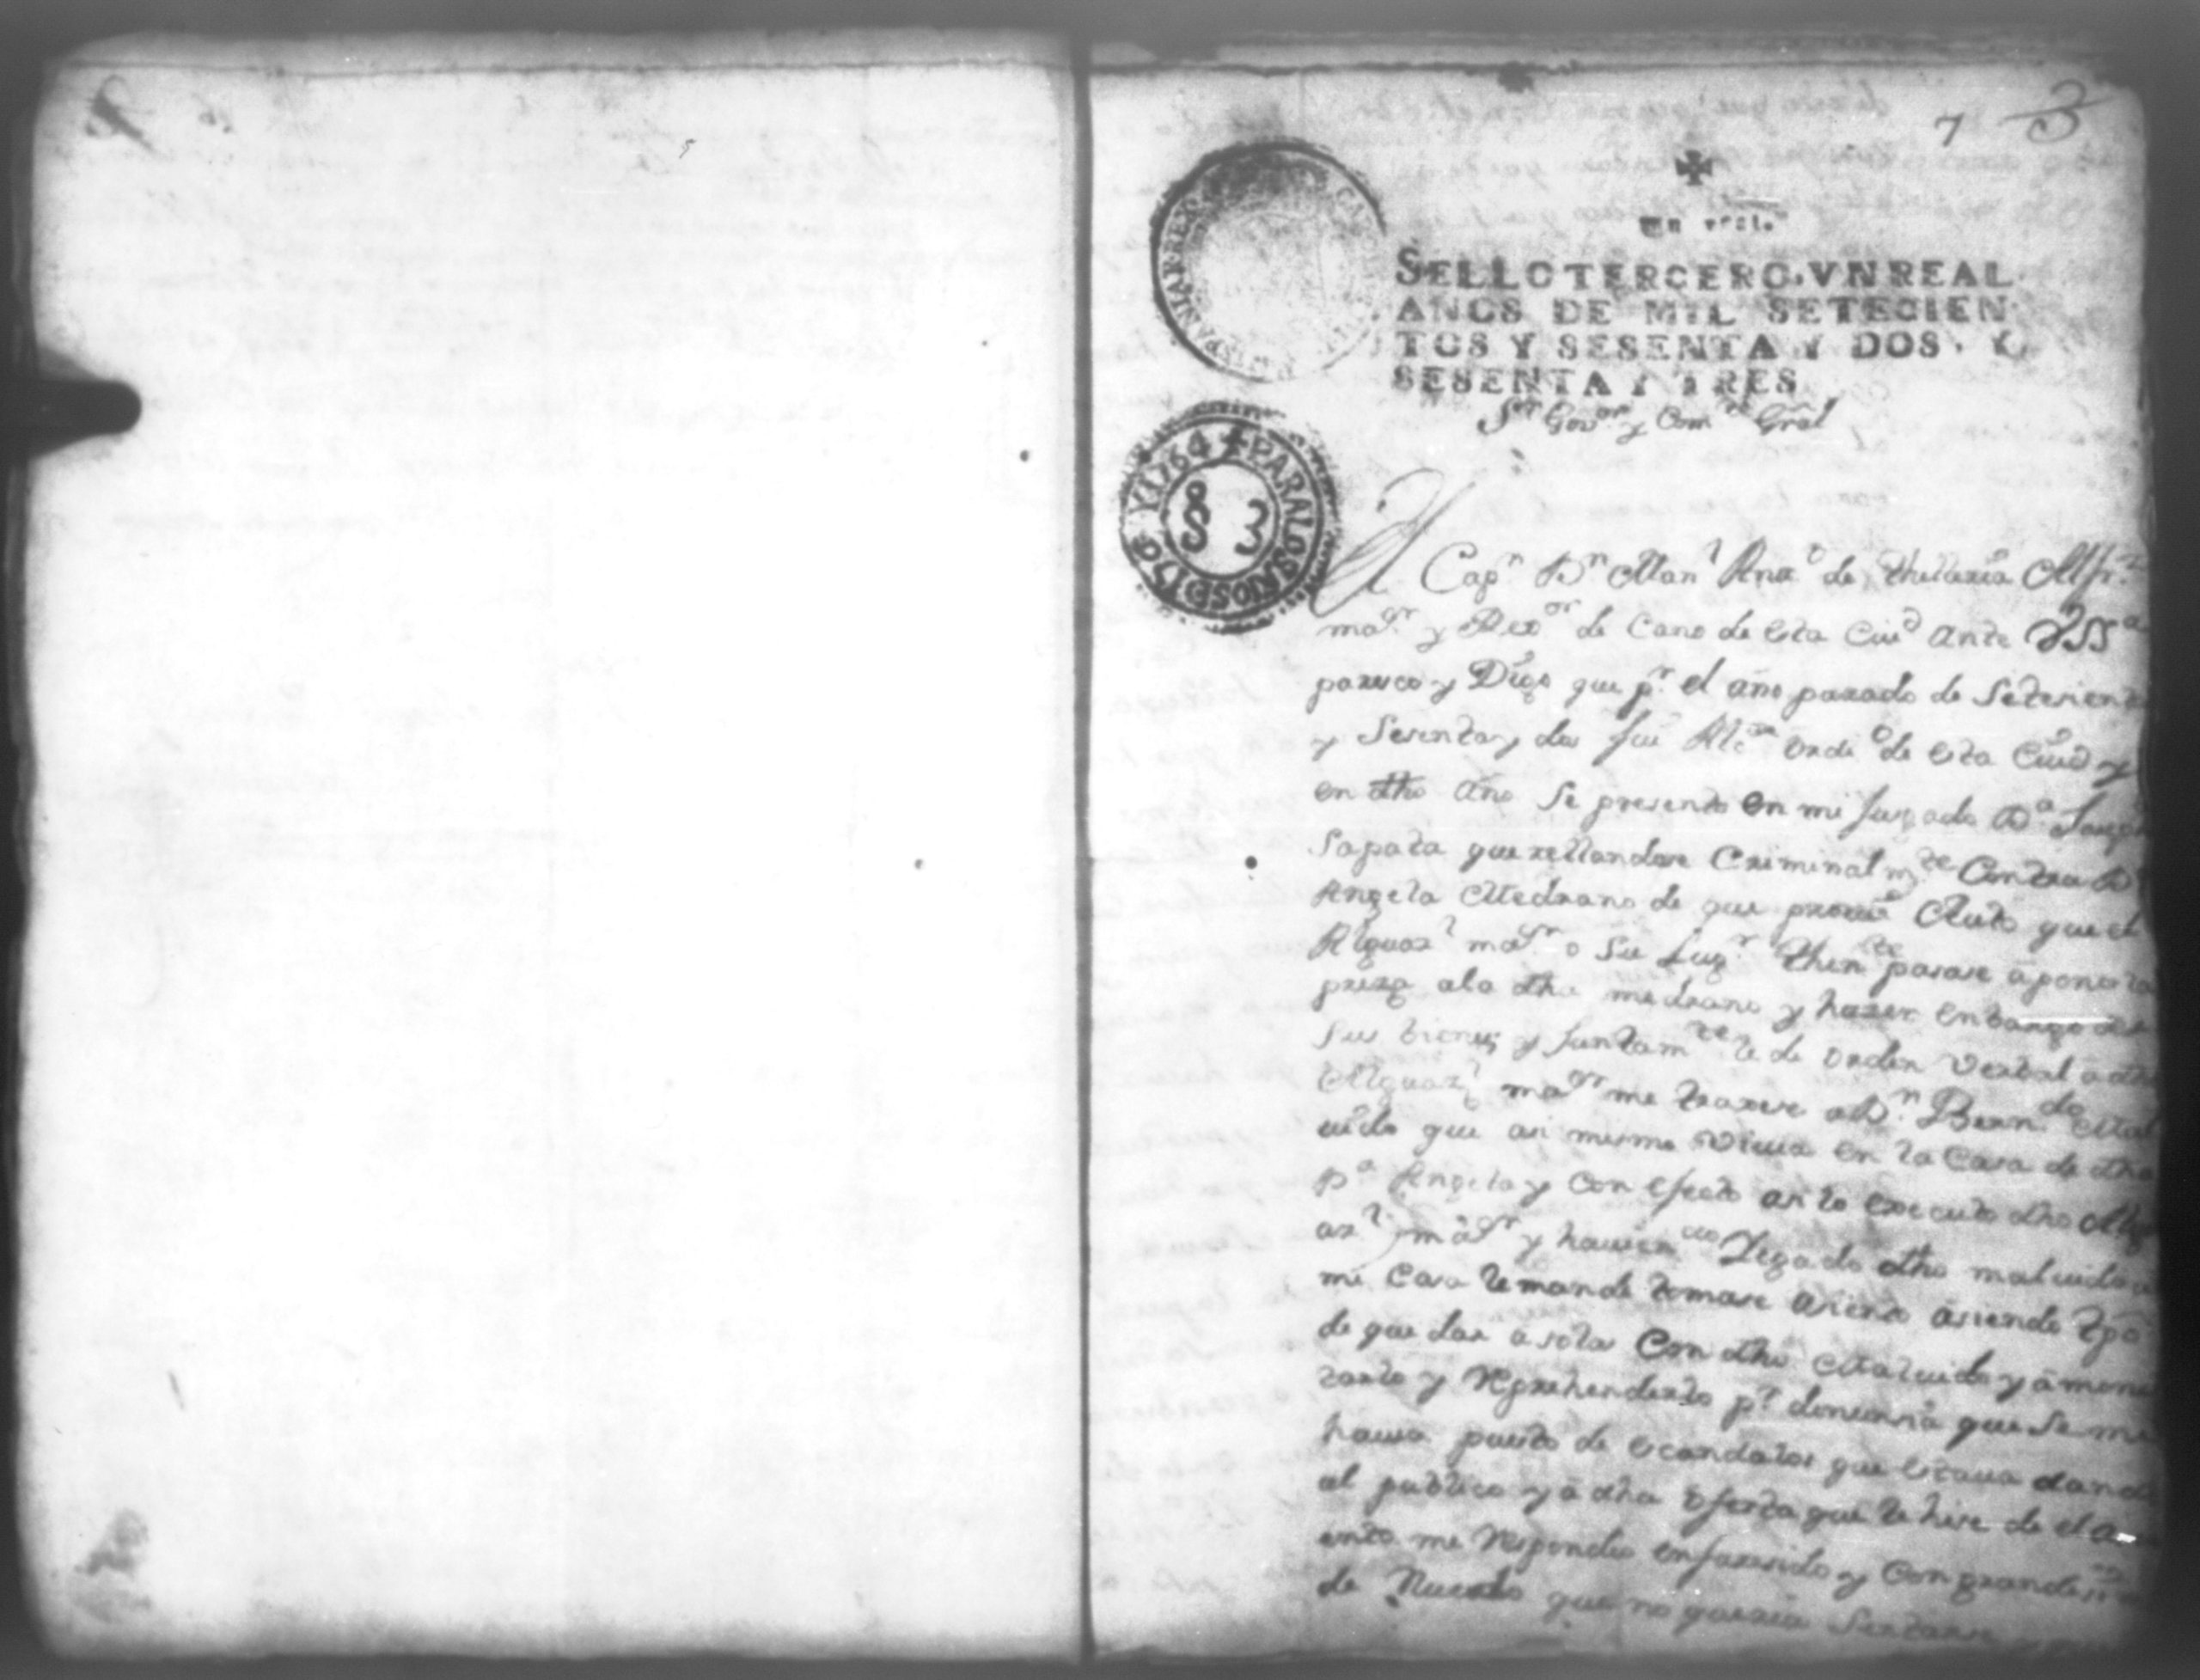 7 3
Un real.
SELLO TERCERO, VN REAL
AÑOS DE MIL SETECIEN
TOS Y SESENTA Y DOS, Y
SESENTA Y TRES
Sor Govor y Comte Gral
YI764 PARA LOS AÑOS D 176
S 3
Capn Dn Manl Anto de Alfrz
maor y Rexor de Cano de esta Ciud ante VSSa
paresco y Digo que pr el año pasado de Setesient
y Sesenta y dos fui Alcde ordino de esta Ciud y
en dho año se presento en mi Jusgado Da
Sapata querellandose Criminalmte Contra Da
Angela Medrano de que provei Auto que el
Alguazl maor o su Lugr thente pasase a poner
preza a la dha medrano y hazer enbargo de
sus bienes y juntamte le di orden Verbal a dho
Alguazl maor me traxese a Dn Berndo Mal
uido que asi mismo Viuia en la Casa de dha
Da Angela y con efecto asi lo executo dho Algu
azl maor y hauiendo Llegado dho maluido a
mi Casa le mande tomase asiento asiendo tpo
de quedar a solas Con dho Maluido y amones
tarlo y Reprehenderlo pr denunsia que se me
hauia puesto de escandalos que estaua dando
al publico y a dha oferta que le hise de el asi
ento me Respondio enfuresido y Con grandes
de que no queria Sentarse